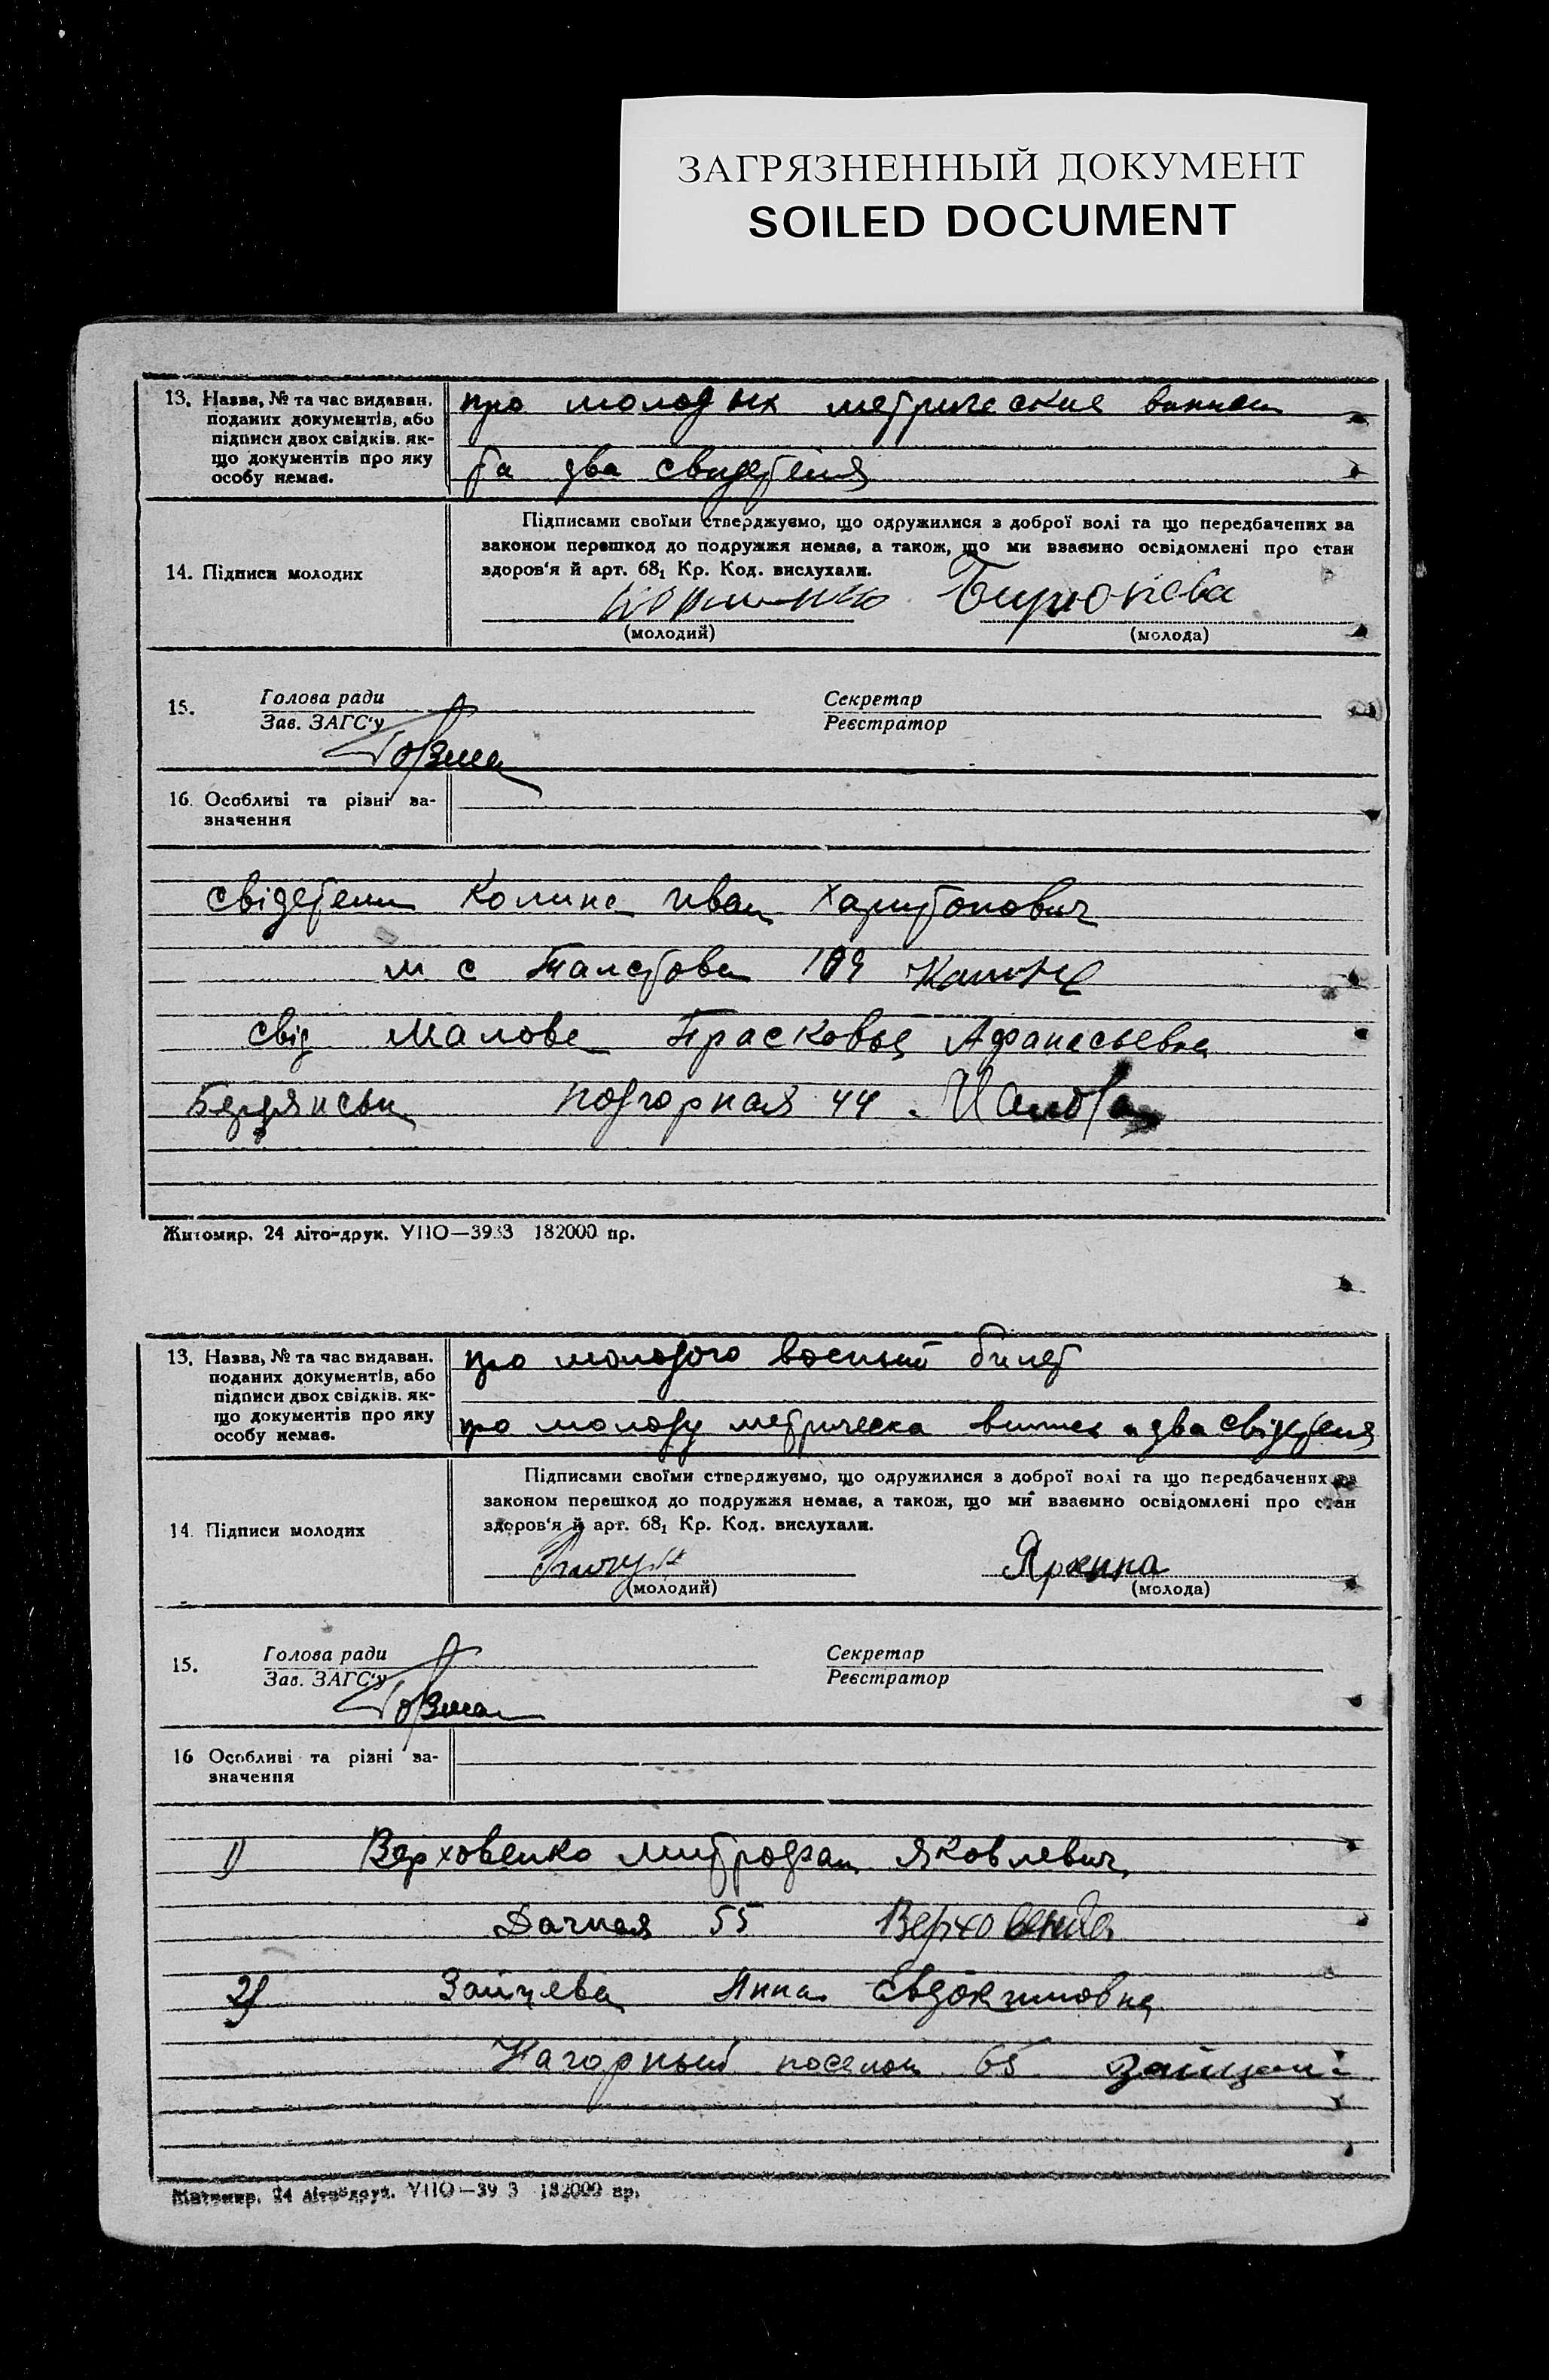 ЗАГРЯЗНЕННЫЙ ДОКУМЕНТ
SOILED DOCUMENT
13. Назва, № та час видаван. поданих документів, або підписи двох свідків, якщо документів про яку особу немає.
про молодых метрические
та два свидетеля
14. Підписи молодих
Підписами своїми стверджуємо, що одружилися з доброї волі та що передбачених за
законом перешкод до подружжя немає, а також, що ми взаємно освідомлені про стан
здоров'я й арт. 68₁ Кр. Код. вислухали.
Бирюкова
(молодий) (молода)
15. Голова ради Секретар
Зав. ЗАГС'у Реєстратор
16. Особливі та різні зазначення
свідетели Иван Харитонович
109
свід Малова Прасковья Афанасьевна
Бердянськ Подгорная 44
Житомир. 24 літо-друк. УПО—3933 182000 пр.
13. Назва, № та час видаван. поданих документів, або підписи двох свідків, якщо документів про яку особу немає.
про молодого военный билет
про молоду метрическа два свідетеля
14. Підписи молодих
Підписами своїми стверджуємо, що одружилися з доброї волі та що передбачених за
законом перешкод до подружжя немає, а також, що ми взаємно освідомлені про стан
здоров'я й арт. 68₁ Кр. Код. вислухали.
(молодий) (молода)
15. Голова ради Секретар
Зав. ЗАГС'у Реєстратор
16 Особливі та різні зазначення
1) Верховенко Митрофан Яковлевич
Дачная 55
2) Зайцева Анна Евдокимовна
Нагорный поселок 65
Житомир. 24 літо-друк. УПО—39 3 182000 пр.